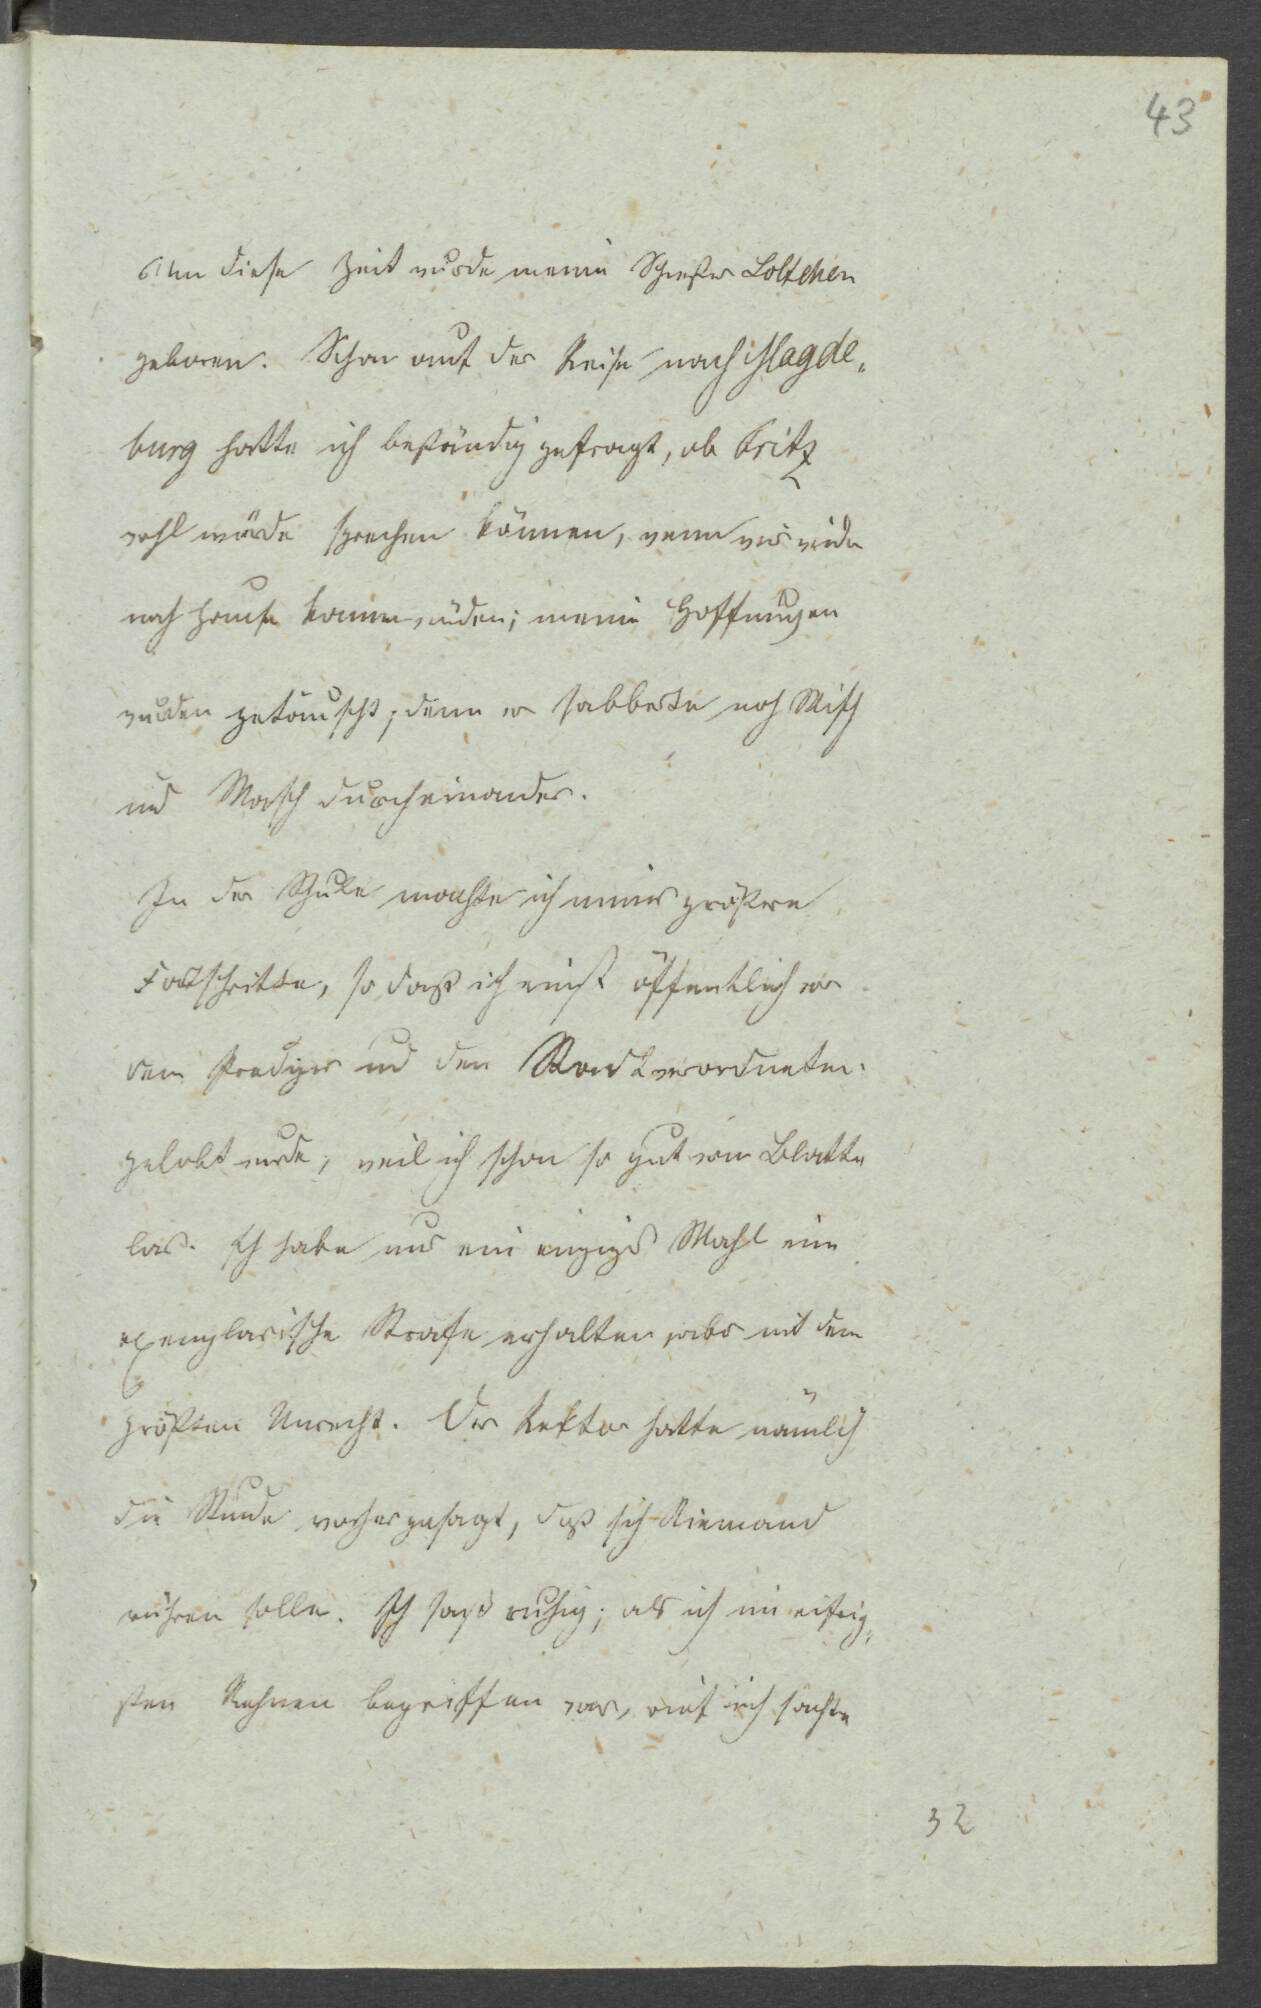 43
Um diese Zeit wurde meine Schwester Lottchen
geboren. Schon auf der Reise nach Magde„
burg hatte ich beständig gefragt, ob Fritz
wohl würde sprechen können, wenn wir wieder
nach Hause kommen würden; meine Hoffnungen
wurden getäuscht; denn er sabberte noch Misch
und Masch durcheinander.
In der Schule machte ich immer größere
Fortschritte, so daß ich einst öffentlich vor
dem Prediger und den Stadtverordneten
gelobt wurde, weil ich schon so gut vom Blatte
las. Ich habe nur ein einziges Mahl eine
exemplarische Strafe erhalten, aber mit dem
größten Unrecht. Der Rektor hatte nämlich
die Stunde vorher gesagt, daß sich Niemand
rühren solle. Ich saß ruhig; als ich im eifrig„
sten Rechnen begriffen war, rief ich sachte
32